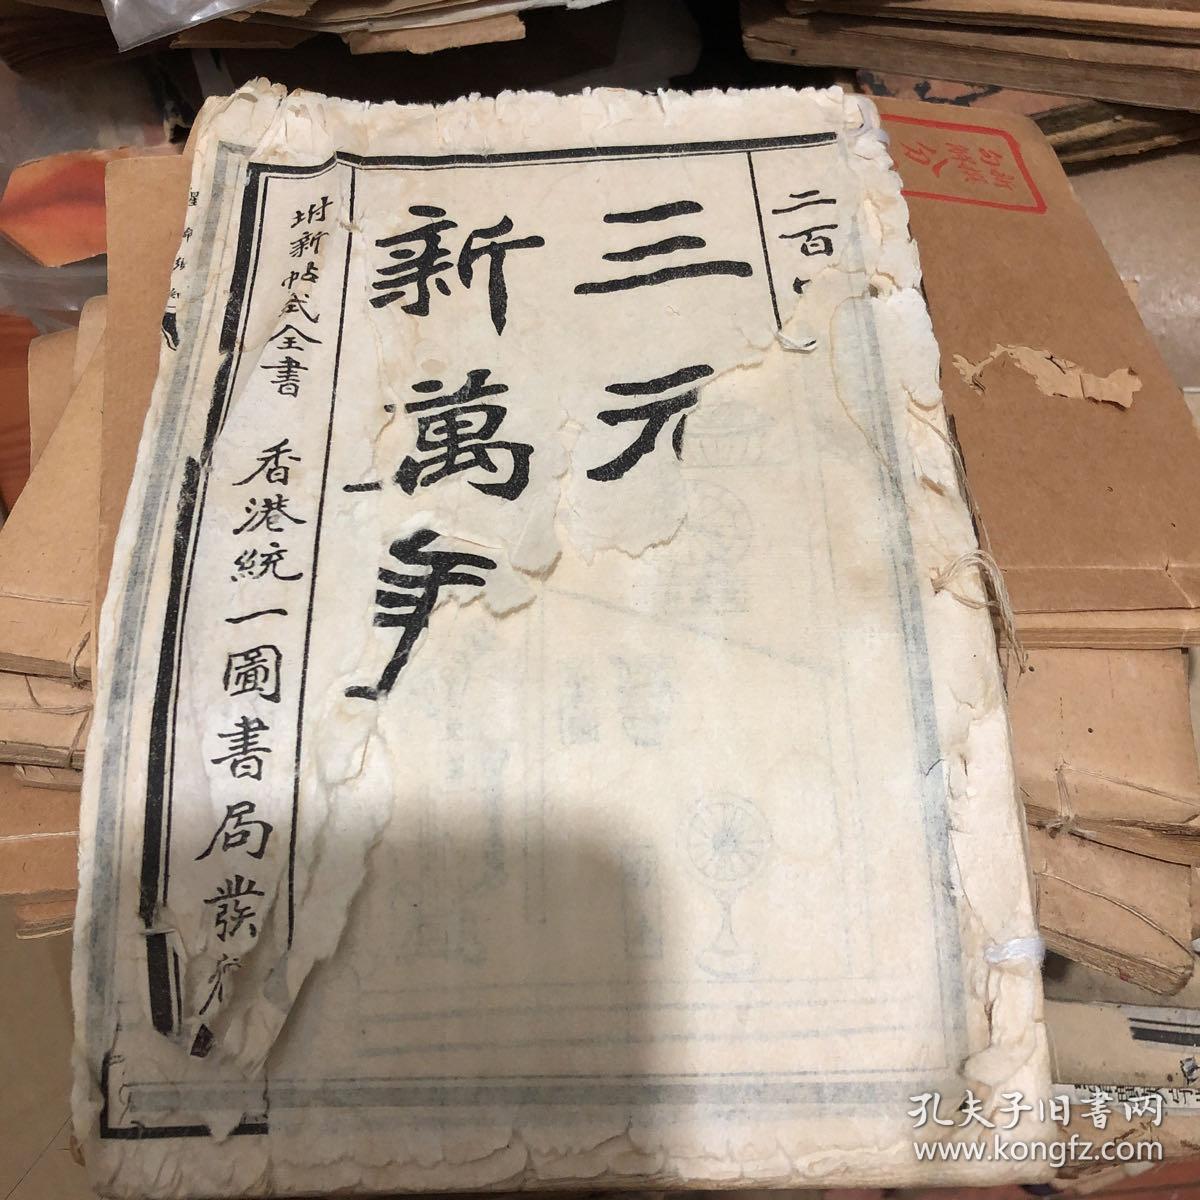 二百
三元
新萬年
附新帖式全書 香港統一圖書局發行
孔夫子旧书网
www.kongfz.com